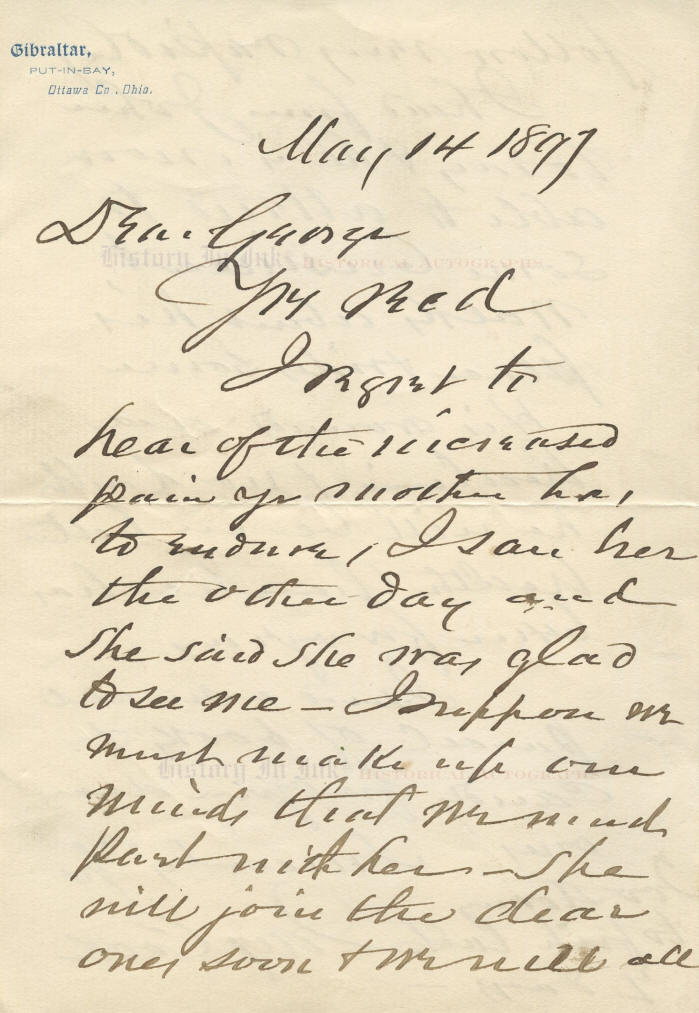 Gibraltar,
PUT-IN-BAY,
Ottawa Co., Ohio.
May 14 1897
Dear George
History In Ink Historical Autographs
Yrs recd
I regret to
hear of the increased
pain yr mother has
to endure, I saw her
the other day and
she said she was glad
to see me – I suppose we
must make up our
History In Ink Historical Autographs
minds that we must
part with her – she
will join the dear
ones soon & we will all